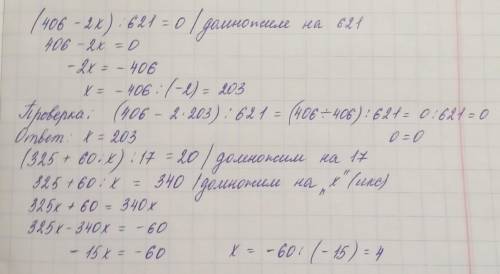 (406 - 2x) : 621 = 0 / домножим на 621
406 - 2x = 0
-2x = -406
x = -406 : (-2) = 203
Проверка: (406 - 2·203) : 621 = (406÷406) : 621 = 0 : 621 = 0
Ответ: x = 203 0=0
(325 + 60 : x) : 17 = 20 / домножим на 17
325 + 60 : x = 340 / домножим на „x" (икс)
325x + 60 = 340x
325x - 340x = -60
-15x = -60 x = -60 : (-15) = 4